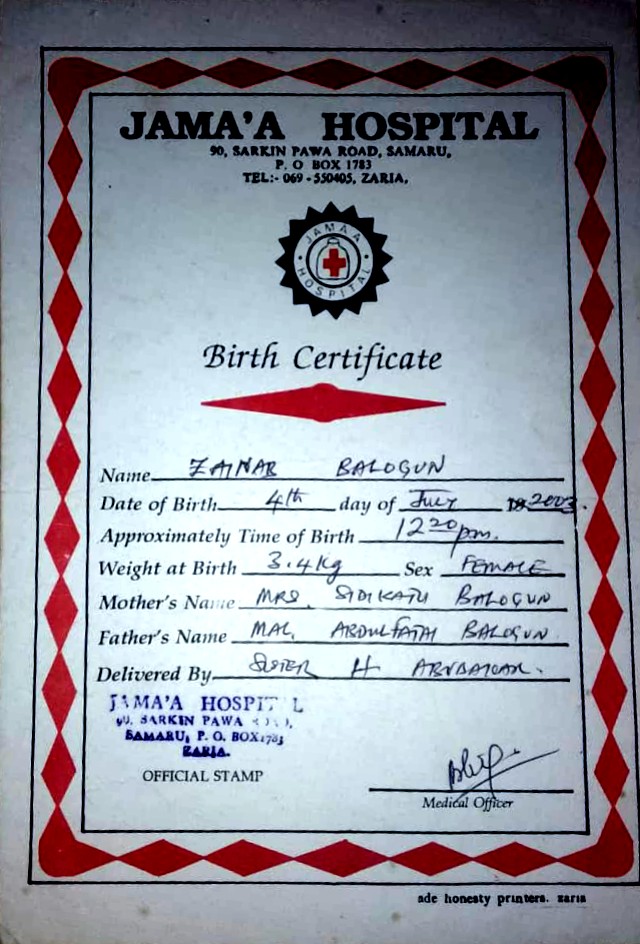 JAMA'A HOSPITAL
90, SARKIN PAWA ROAD, SAMARU,
P. O BOX 1783
TEL:- 069 - 550405, ZARIA,
JAMAA
HOSPITAL
Birth Certificate
Name ZAINAB BALOGUN
Date of Birth 4th day of July 2003
Approximately Time of Birth 12 20 pm.
Weight at Birth 3.4kg Sex FEMALE
Mother's Name MRS. SIDIKATU BALOGUN
Father's Name MAL. ABDULFATAI BALOGUN
Delivered By SISTER H ABUBAKAR.
JAMA'A HOSPIT L
90, SARKIN PAWA
SAMARU, P. O. BOX 1783
ZARIA.
OFFICIAL STAMP
Medical Officer
ade honesty printers. zaria